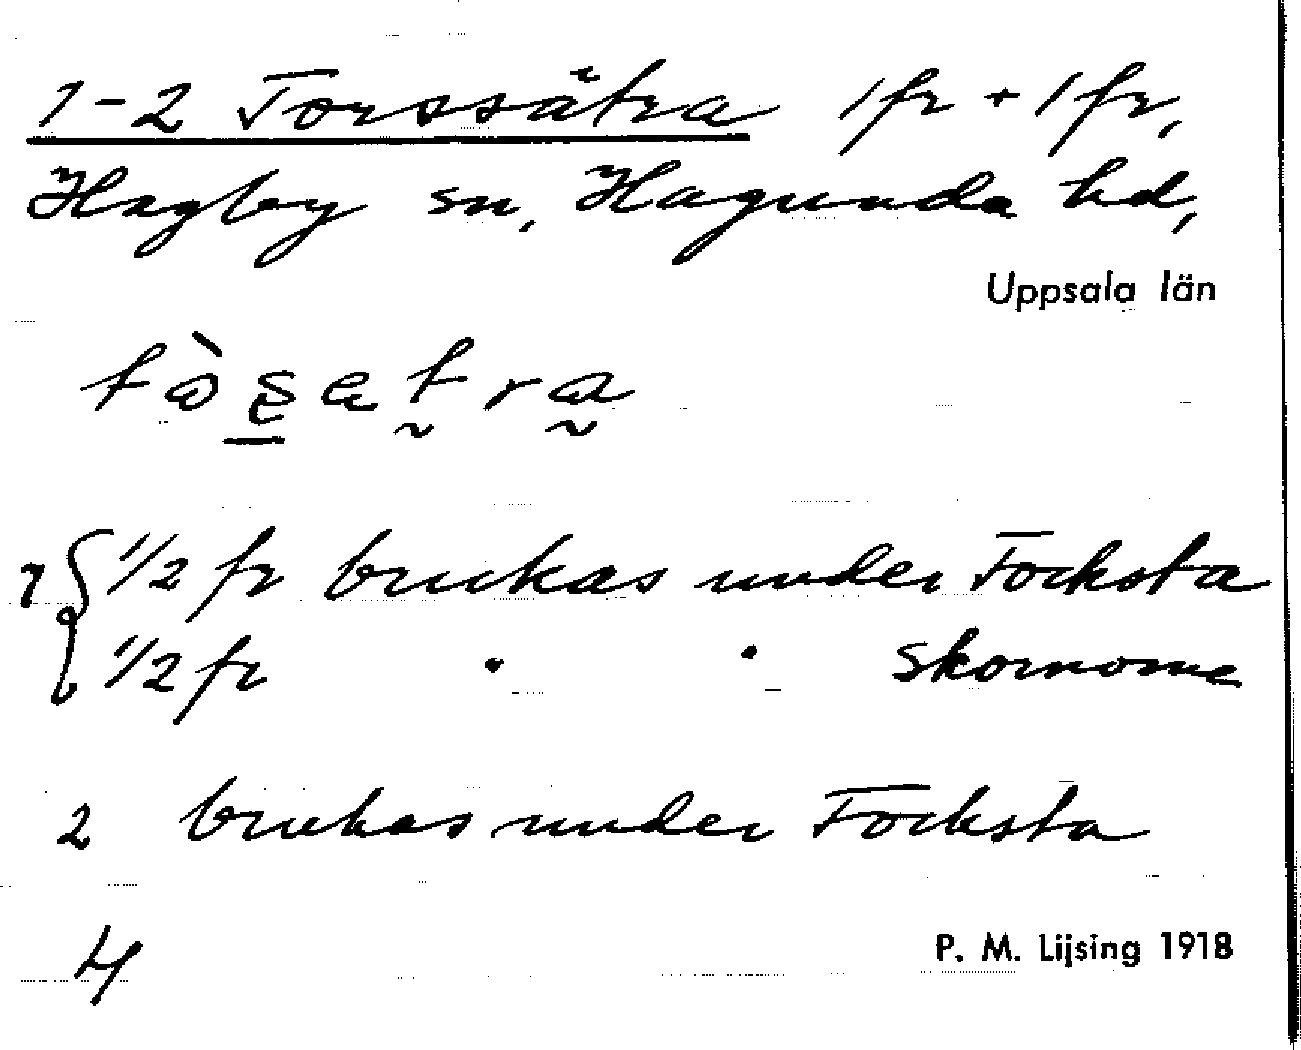 1-2 Torssätra 1 fr + 1 fr,
Hagby sn, Hagunda hd,
Uppsala län
1 { 1/2 fr brukas under Focksta
1/2 fr " " Skornome
2 brukas under Focksta
4
P. M. Lijsing 1918